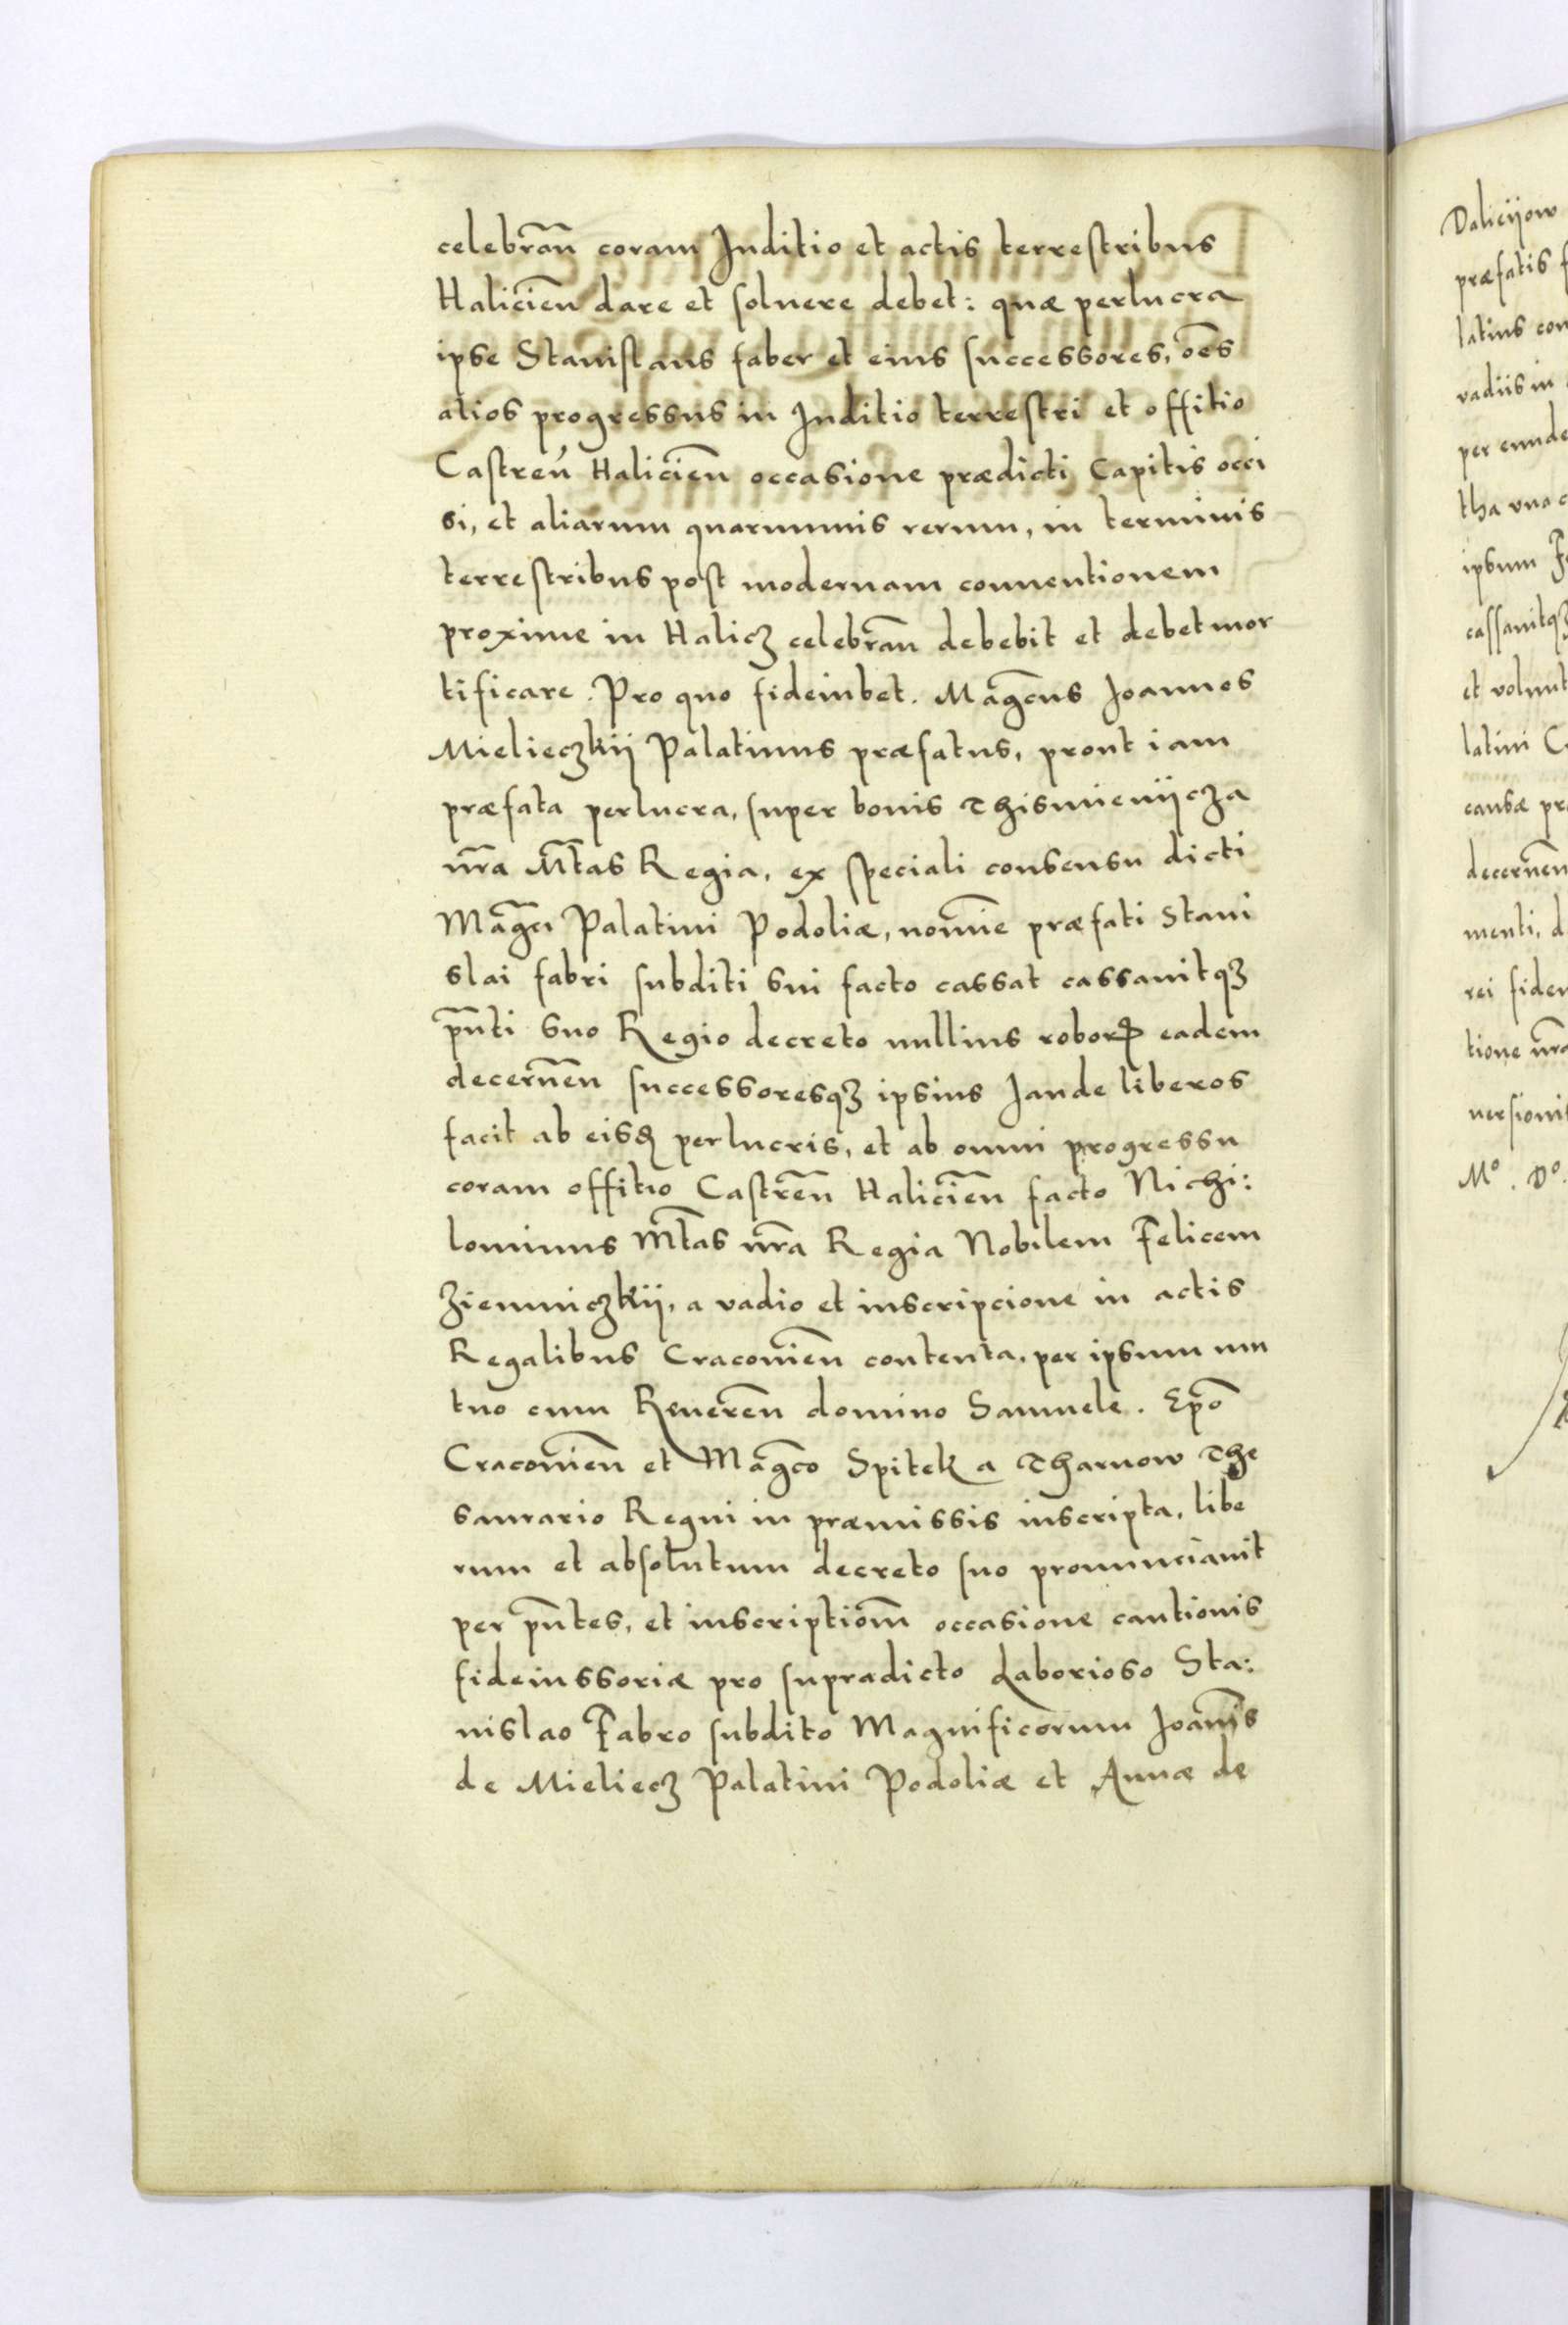 celebrañ coram Juditio et actis terrestribus
Halicieñ dare et soluere debet: quæ perlucra
ipse Stanislaus faber et eius successores, oẽs
alios progressus in Juditio terrestri et offitio
Castreñ Halicieñ occasione prædicti Capitis occi
si, et aliarum quarumuis rerum, in terminis
terrestribus post modernam conuentionem
proxime in Halicz celebrañ debebit et debet mor
tificare. Pro quo fideiubet. Magcus Joannes
Mielieczkij Palatinus præfatus, prout iam
præfata perlucra, super bonis Thismienijcza
nra Mtas Regia, ex speciali consensu dicti
Magci Palatini Podoliæ, nomie præfati Stani
slai fabri subditi sui facto cassat cassauitqz
pnti suo Regio decreto nullius robor̨ eadem
decerneñ successoresqz ipsius Jande liberos
facit ab eisd perlucris, et ab omni progressu
coram offitio Castreñ Haliciеñ facto Nichi:
lominus Mtas nra Regia Nobilem Felicem
Ziemniczkij, a vadio et inscripcione in actis
Regalibus Cracouieñ contenta, per ipsum mu
tuo cum Reuereñ domino Samuele. Epo
Cracouieñ et Magco Spitek a Tharnow The
saurario Regni in præmissis inscripta, libe
rum et absolutum decreto suo pronunciauit
per pntes, et inscriptiom occasione cautionis
fideiussoriæ pro supradicto Laborioso Sta:
nislao Fabro subdito Magnificorum Joanis
de Mieliecz Palatini Podoliæ et Annæ de
Dalieijow
præfatis
latius con
vadiis in
per eunde
tha vna
ipsum
cassauitqz
et volunt
latini
causæ pr
decerneñ
menti, d
rei fiden
tione nra
uersionis
Mo. Do.